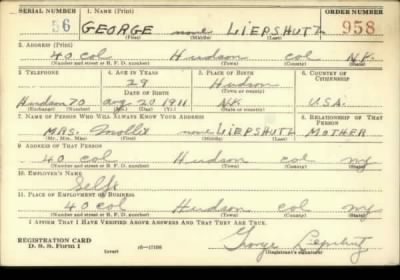 SERIAL NUMBER 1. NAME (Print) ORDER NUMBER
56 GEORGE none LIEPSHUTZ 958
(First) (Middle) (Last)
2. ADDRESS (Print)
40 Col Hudson Col N.Y.
(Number and street or R. F. D. number) (Town) (County) (State)
3. TELEPHONE 4. AGE IN YEARS 5. PLACE OF BIRTH 6. COUNTRY OF CITIZENSHIP
29 Hudson
DATE OF BIRTH (Town or county)
Hudson 70 Aug 20 1911 N.Y. U.S.A.
(Exchange) (Number) (Mo.) (Day) (Yr.) (State or country)
7. NAME OF PERSON WHO WILL ALWAYS KNOW YOUR ADDRESS 8. RELATIONSHIP OF THAT PERSON
MRS. Mollie none LIEPSHUTZ MOTHER
(Mr., Mrs., Miss) (First) (Middle) (Last)
9. ADDRESS OF THAT PERSON
40 Col Hudson Col NY
(Number and street or R. F. D. number) (Town) (County) (State)
10. EMPLOYER'S NAME
Self
11. PLACE OF EMPLOYMENT OR BUSINESS
40 Col Hudson Col NY
(Number and street or R. F. D. number) (Town) (County) (State)
I AFFIRM THAT I HAVE VERIFIED ABOVE ANSWERS AND THAT THEY ARE TRUE.
REGISTRATION CARD
D. S. S. Form 1 (over) 16—17105 George Liepshutz
(Registrant's signature)